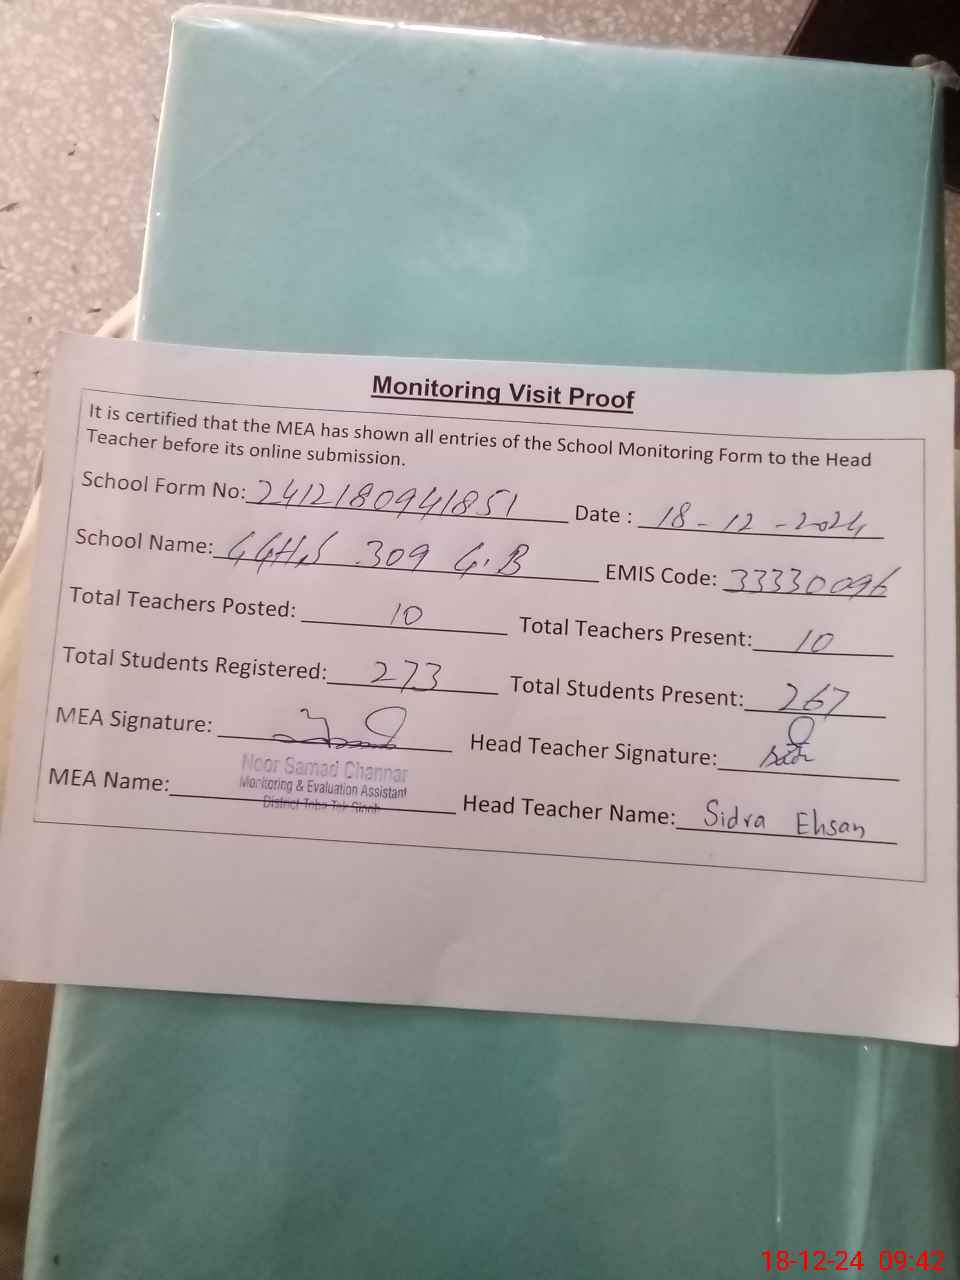 Monitoring Visit Proof
It is certified that the MEA has shown all entries of the School Monitoring Form to the Head
Teacher before its online submission.
School Form No: 2412180941851 Date : 18-12-2024
School Name: GGHS 309 G.B EMIS Code: 33330096
Total Teachers Posted: 10 Total Teachers Present: 10
Total Students Registered: 273 Total Students Present: 267
MEA Signature: Head Teacher Signature:
MEA Name: Noor Samad Channar
Monitoring & Evaluation Assistant
District Toba Tek Singh
Head Teacher Name: Sidra Ehsan
18-12-24 09:42